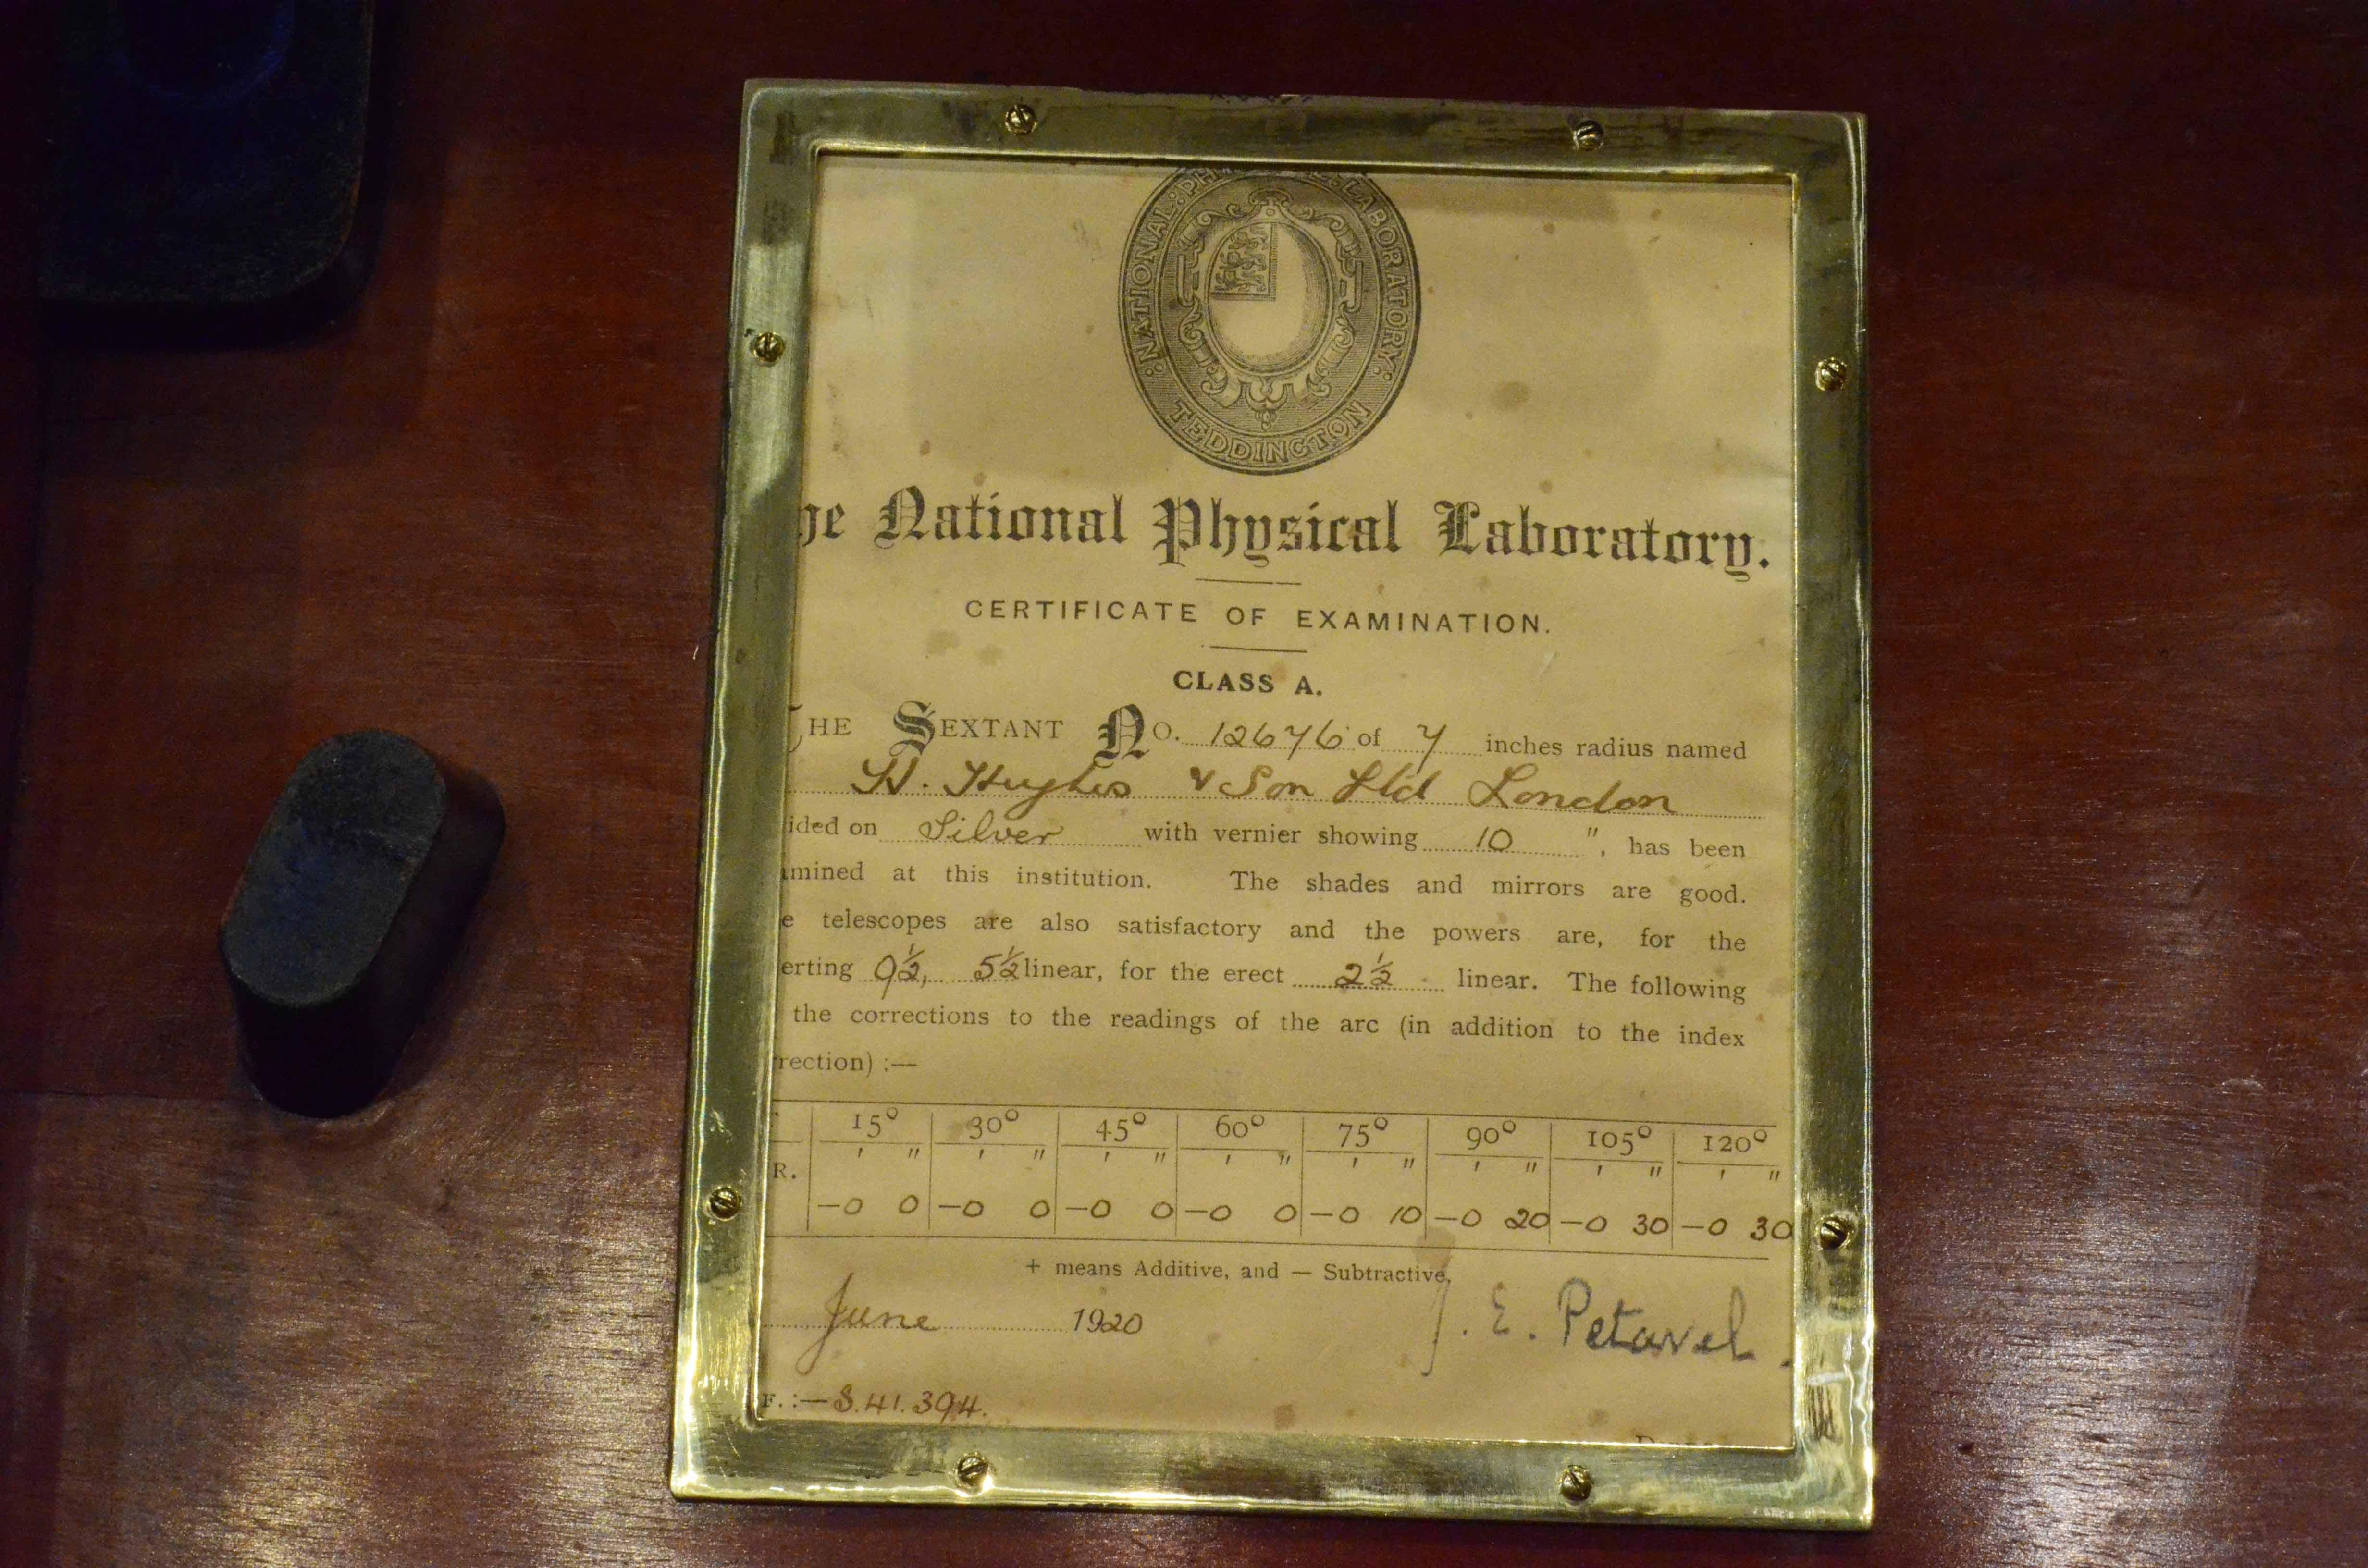 :NATIONAL:PH L:LABORATORY:
TEDDINGTON
he National Physical Laboratory.
CERTIFICATE OF EXAMINATION.
CLASS A.
THE SEXTANT No. 12676 of 7 inches radius named
H. Hughes & Son Ltd London
ided on Silver with vernier showing 10 ", has been
mined at this institution. The shades and mirrors are good.
e telescopes are also satisfactory and the powers are, for the
erting 9½, 5½ linear, for the erect 2½ linear. The following
the corrections to the readings of the arc (in addition to the index
rection) :—
15° 30° 45° 60° 75° 90° 105° 120°
' " ' " ' " ' " ' " ' " ' " ' "
R.
—0 0 —0 0 —0 0 —0 0 —0 10 —0 20 —0 30 —0 30
+ means Additive, and — Subtractive.
June 1920
J. E. Petavel.
F. :— S.41.394.